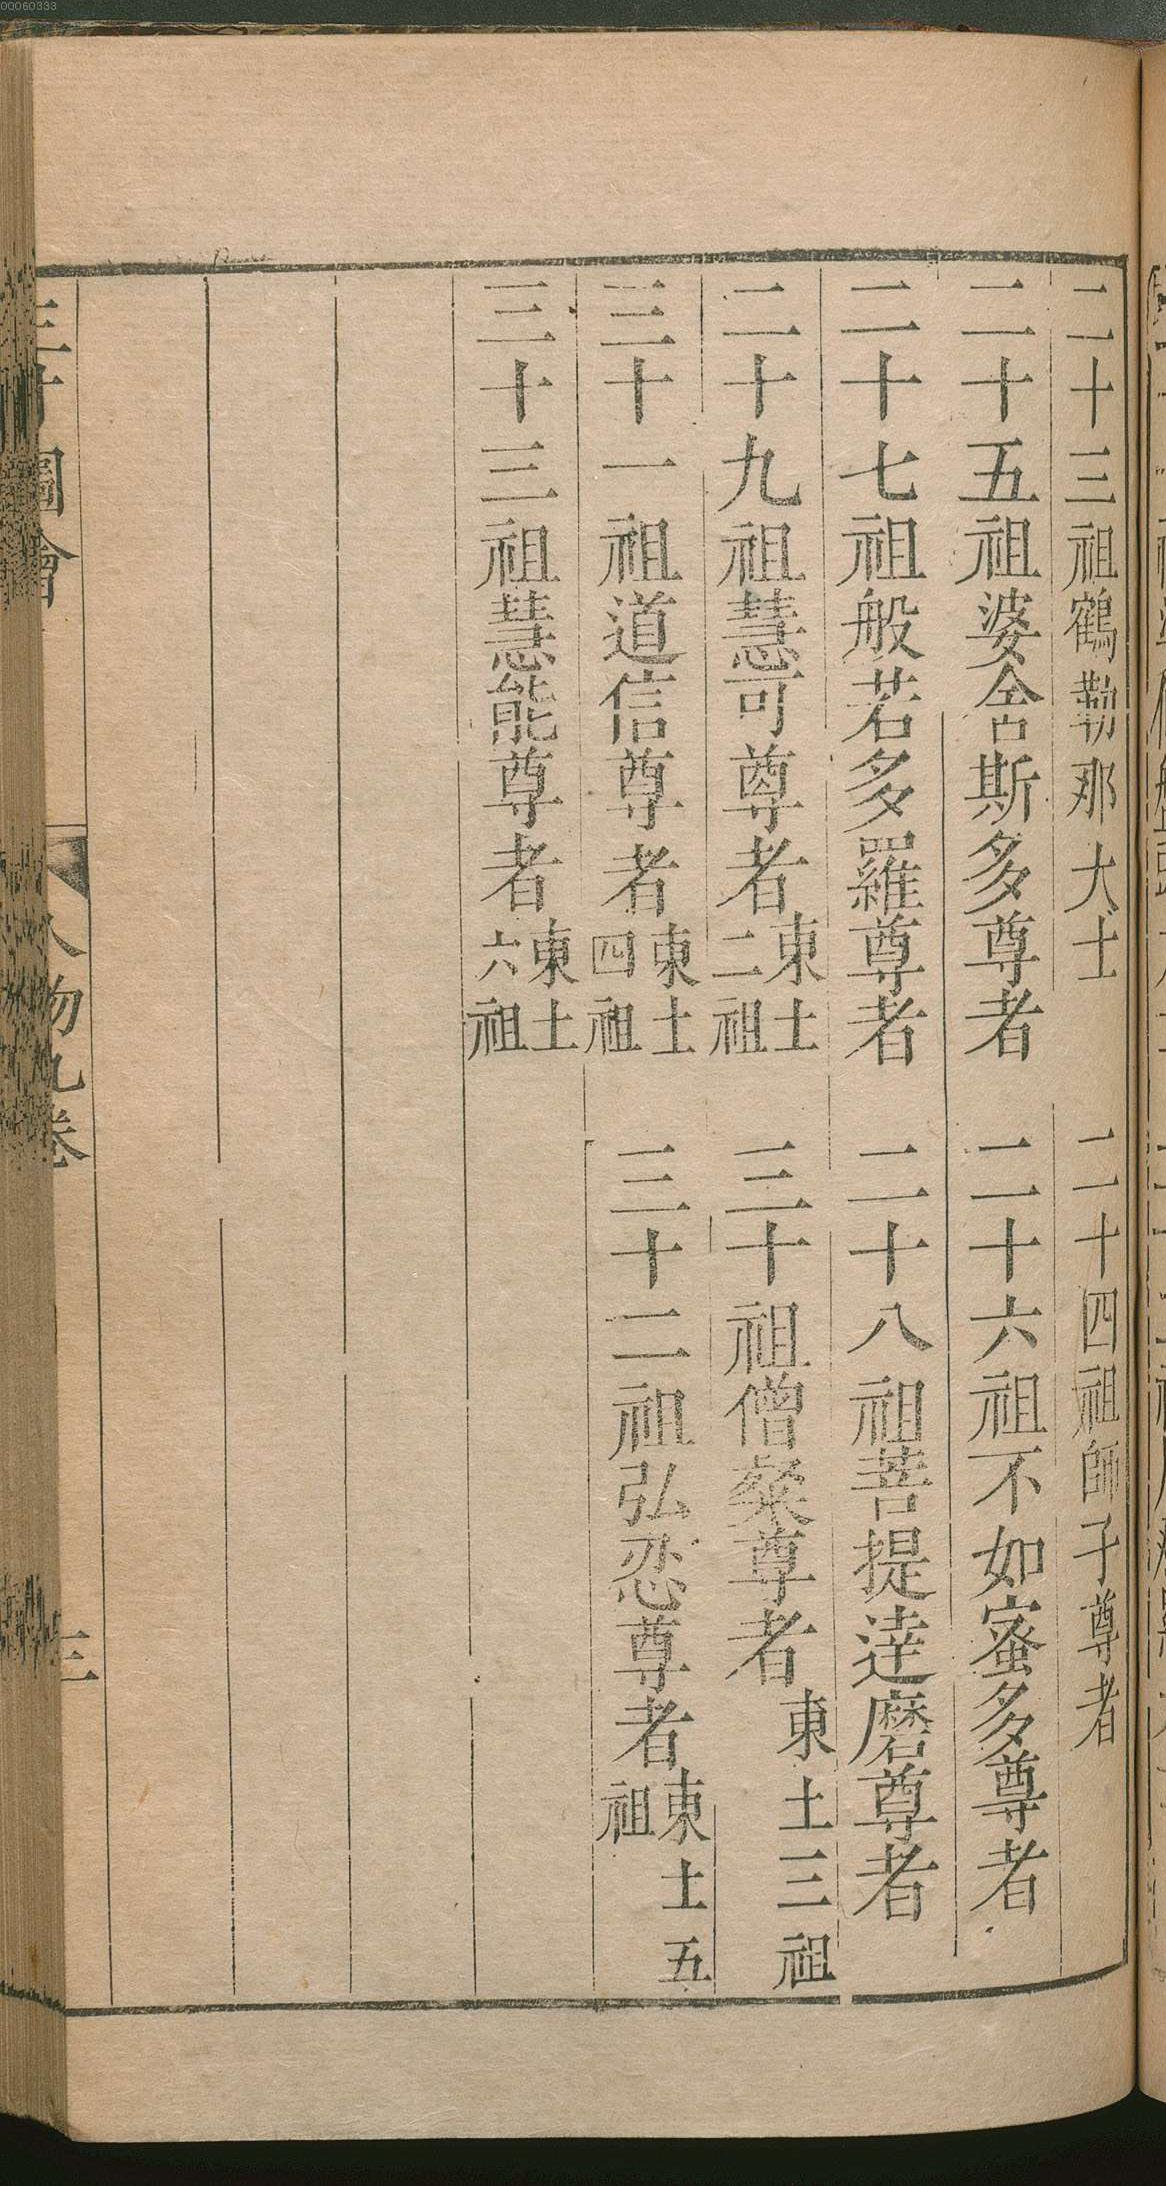 00060333
二十三祖鶴勒那大士 二十四祖師子尊者
二十五祖婆舍斯多尊者 二十六祖不如蜜多尊者
二十七祖般若多羅尊者 二十八祖菩提達磨尊者
二十九祖慧可尊者東土二祖 三十祖僧粲尊者東土三祖
三十一祖道信尊者東土四祖 三十二祖弘忍尊者東土五祖
三十三祖慧能尊者東土六祖
三才圖會 人物九卷 三